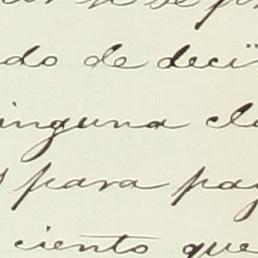 do de deci
inguna cl
para pag
ciento que